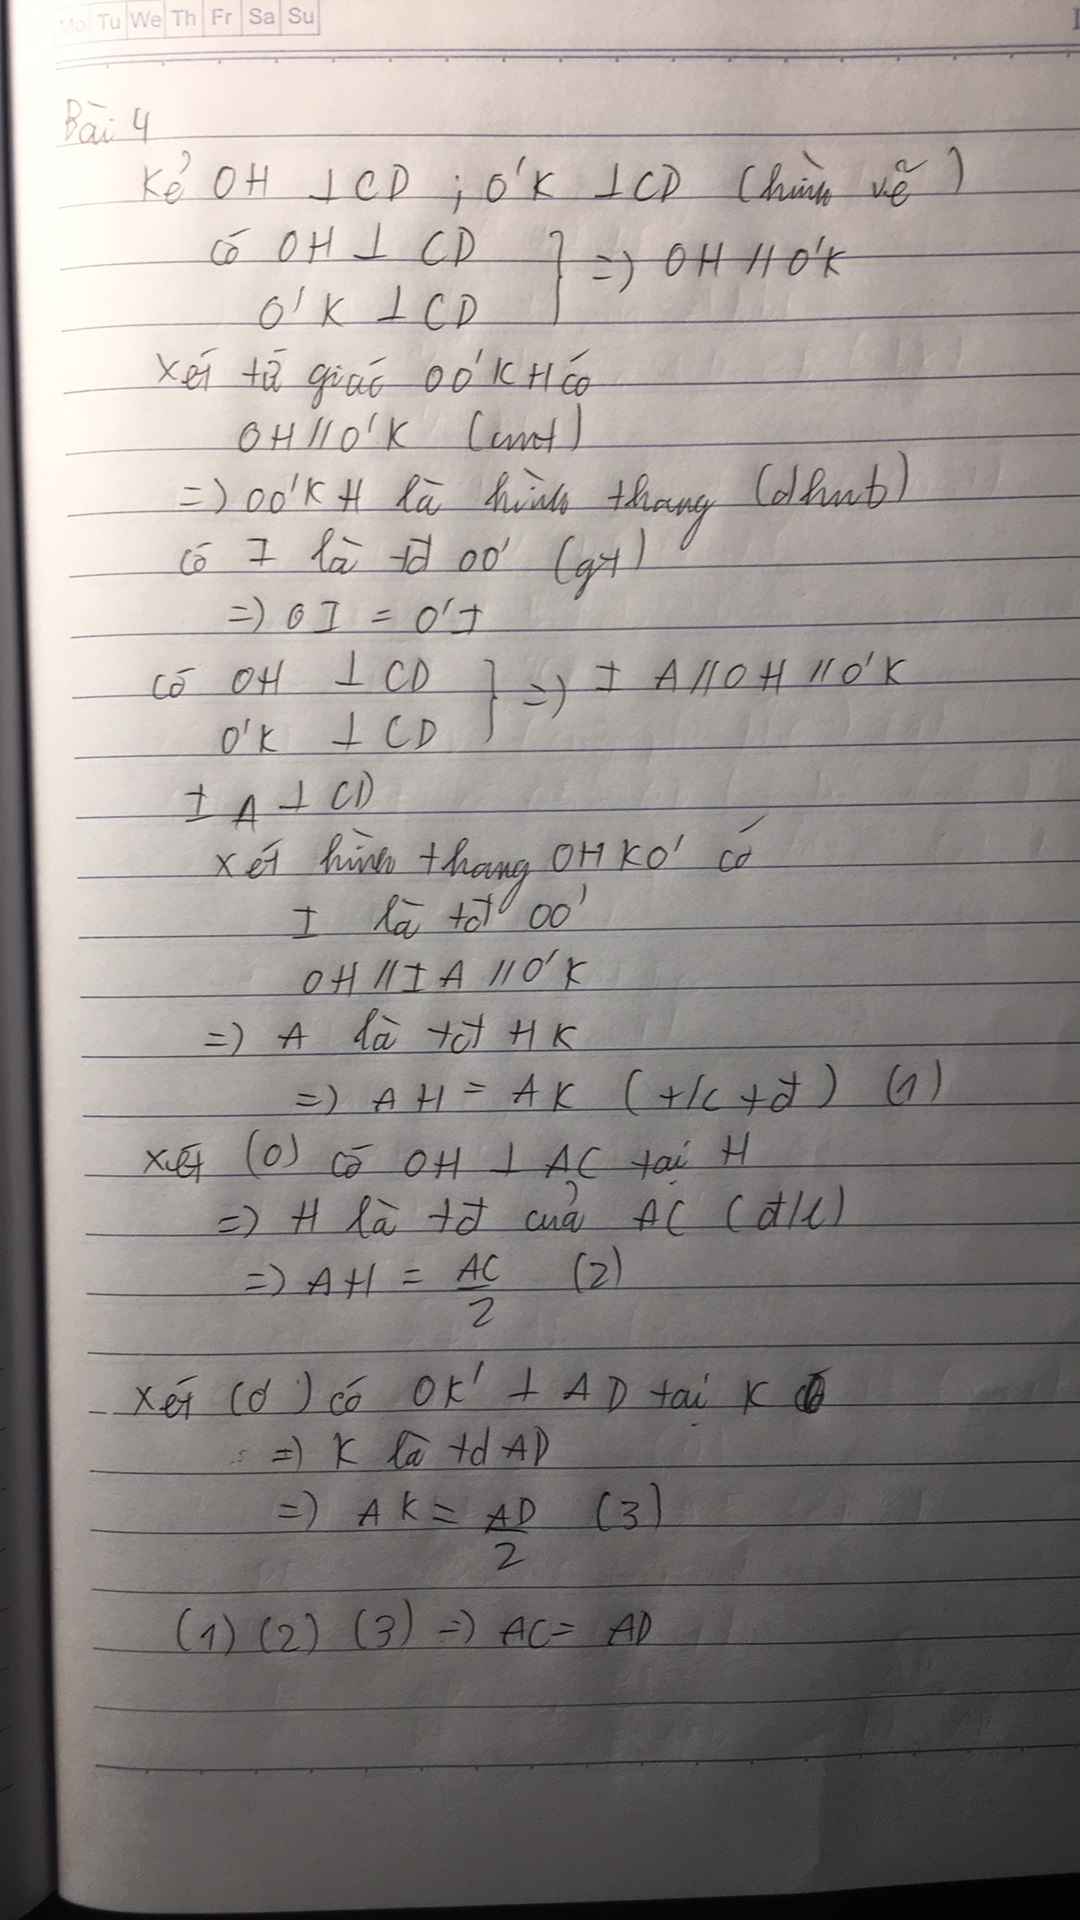 Mo Tu We Th Fr Sa Su
Bài 4
Kẻ OH ⊥ CD ; O'K ⊥ CD (hình vẽ)
có OH ⊥ CD
O'K ⊥ CD } => OH // O'K
Xét tứ giác OO'KH có
OH // O'K (cmt)
=) OO'KH là hình thang (dhnb)
có I là tđ OO' (gt)
=) OI = O'I
có OH ⊥ CD
O'K ⊥ CD } =) IA // OH // O'K
IA ⊥ CD
Xét hình thang OHKO' có
I là tđ OO'
OH // IA // O'K
=) A là tđ HK
=) AH = AK (t/c tđ) (1)
Xét (O) có OH ⊥ AC tại H
=) H là tđ của AC (đ/l)
=) AH = AC/2 (2)
Xét (O') có OK' ⊥ AD tại K
=) K là td AD
=) AK = AD/2 (3)
(1) (2) (3) =) AC = AD